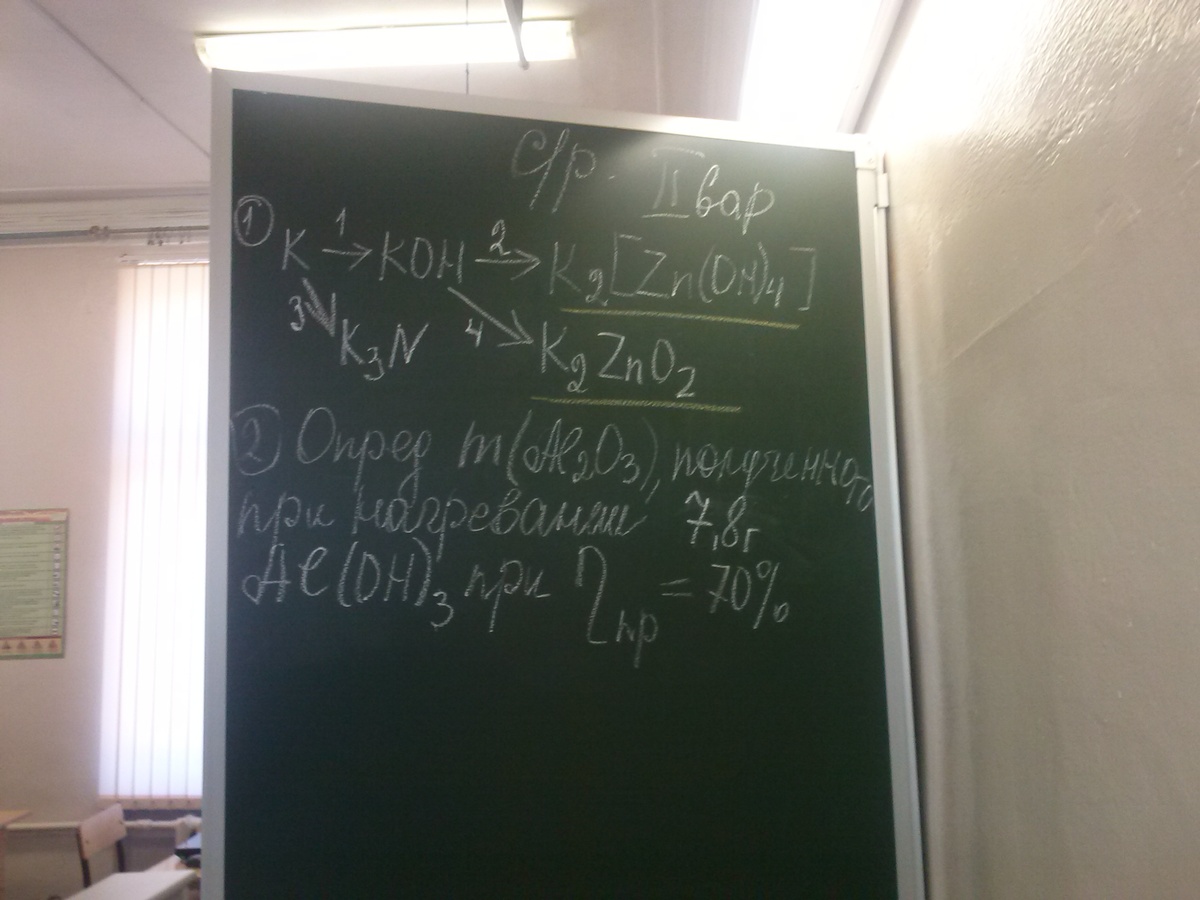 с/р. II вар
① K →1 KOH →2 K₂[Zn(OH)₄]
3↘ K₃N 4↘ K₂ZnO₂
② Опред m(Al₂O₃), полученного
при нагревании 7,8г
Al(OH)₃ при ηпр = 70%